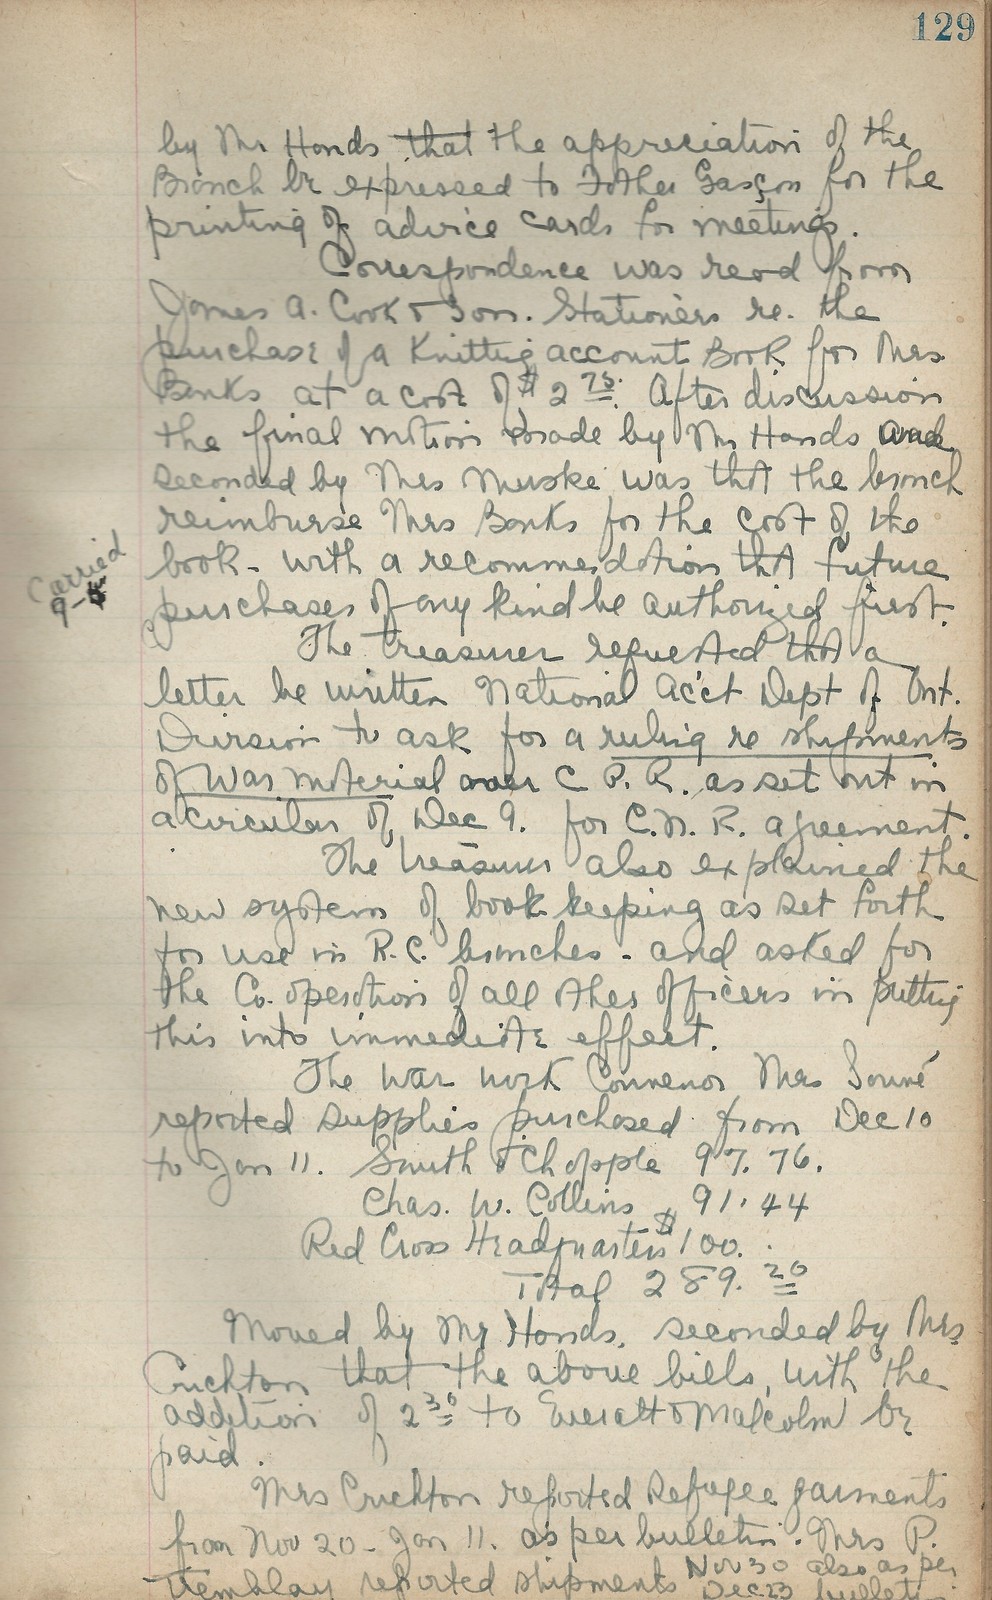 129
by Mr Hands that the appreciation of the
Branch be expressed to Father Gascon for the
printing of advice cards for meetings.
Correspondence was read from
James A. Cook & Son. Stationers re. the
purchase of a Knitting account Book for Mrs
Banks at a cost of $2 75. After discussion
the final motion made by Mr Hands and
seconded by Mrs Muske was that the branch
reimburse Mrs Banks for the cost of the
book - with a recommendation that future
Carried
purchases of any kind be authorized first.
9-
The Treasurer requested that a
letter be written National Acc't Dept of Ont.
Division to ask for a ruling re shipments
of War material over C.P.R. as set out in
a circular of Dec 9. for C.N.R. agreement.
The treasurer also explained the
new system of book keeping as set forth
for use in R.C. branches - and asked for
the Co. operation of all other officers in putting
this into immediate effect.
The war work Convenor Mrs Souvé
reported supplies purchased from Dec 10
to Jan 11. Smith & Chapple 97.76.
Chas. W. Collins 91.44
Red Cross Headquarters $100.
Total 289. 20
Moved by Mr Hands, seconded by Mrs
Crichton that the above bills, with the
addition of 2 30 to Everatt & Malcolm be
paid.
Mrs Crichton reported Refugee garments
from Nov 20 - Jan 11. as per bulletin. Mrs P.
Tremblay reported shipments Nov 30 also as per
Dec 23 bulletin